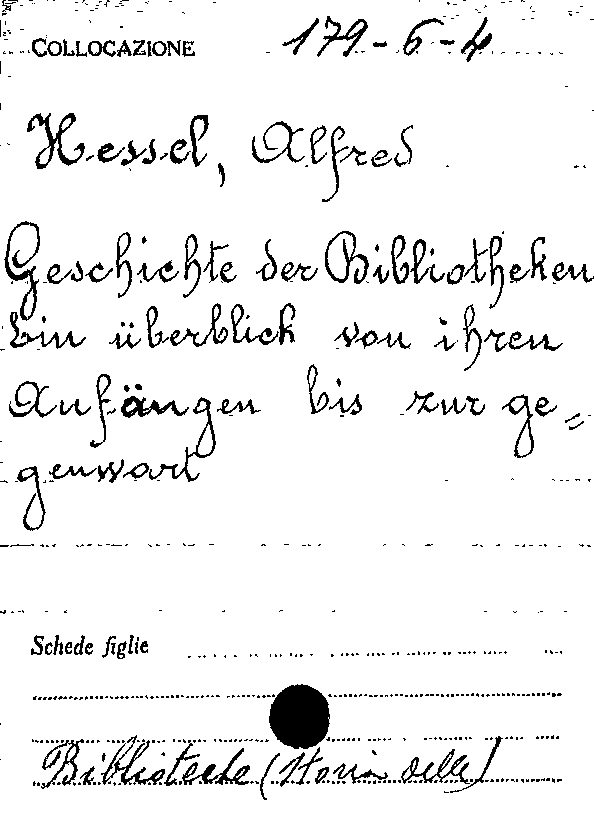 COLLOCAZIONE 179-6-4
Hessel, Alfred
Geschichte der Bibliotheken
Ein überblick von ihren
Anfängen bis zur ge=
genwart
Schede figlie
Biblioteche (storia delle)